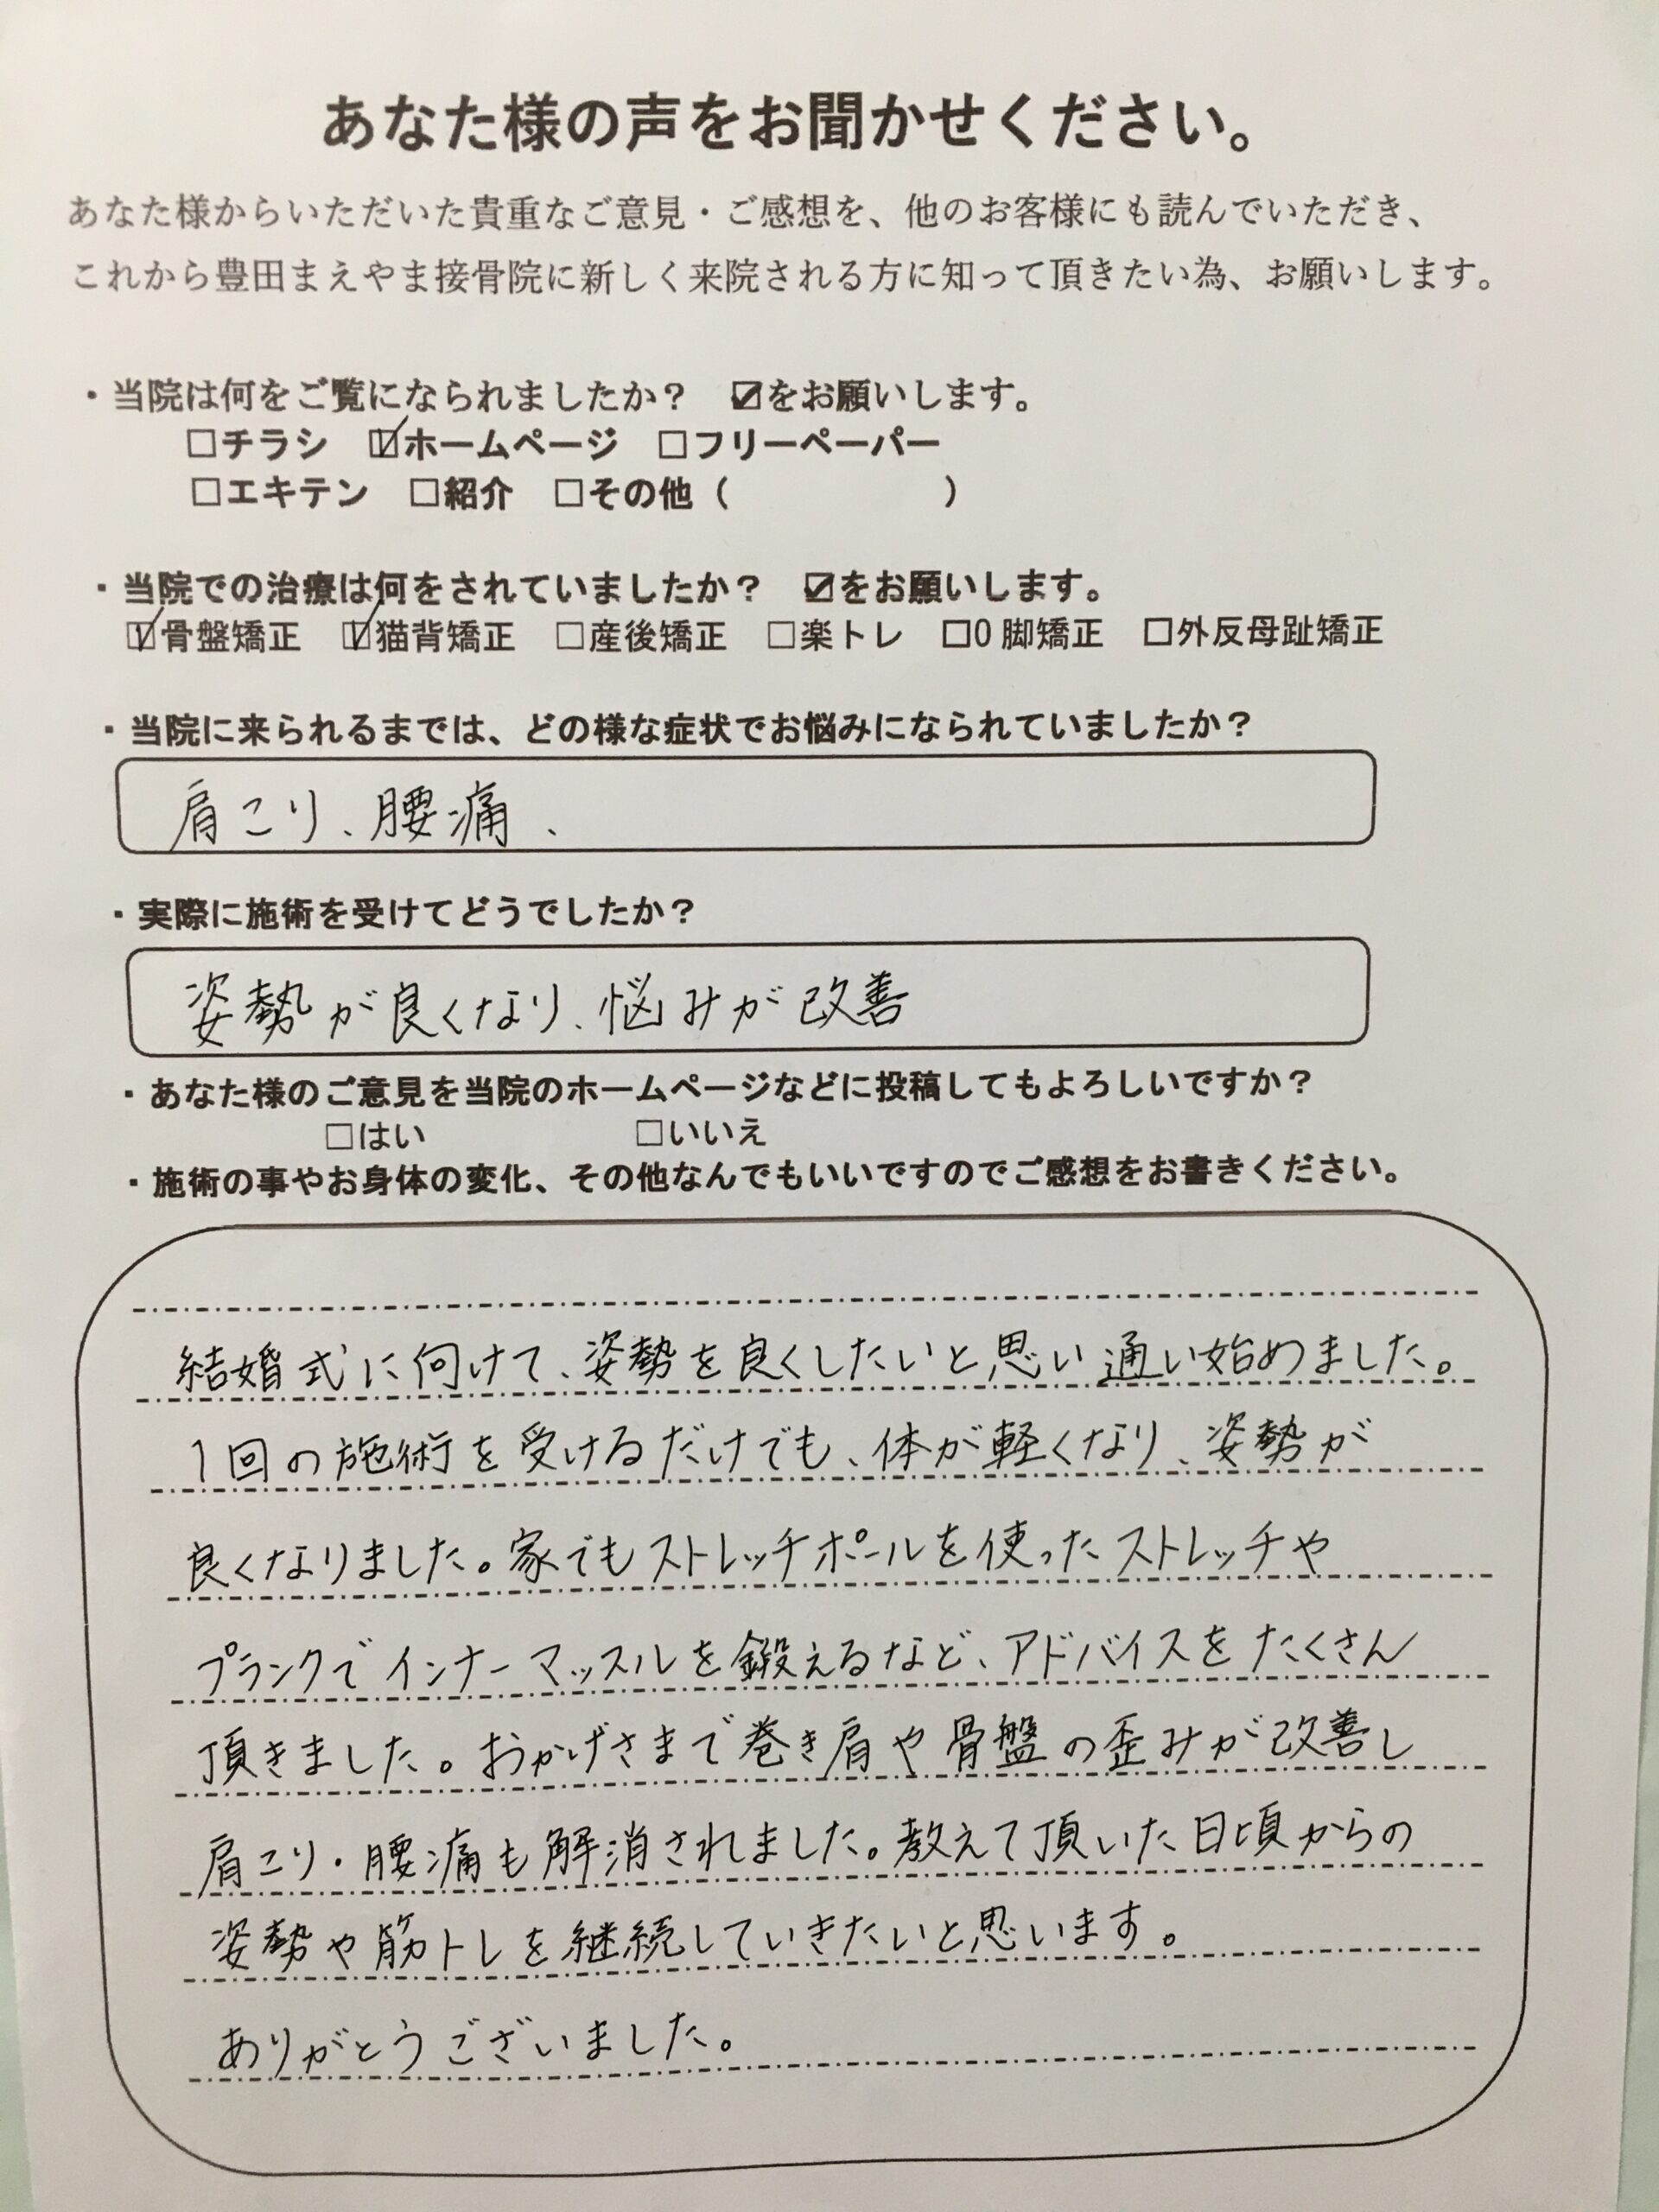 あなた様の声をお聞かせください。
あなた様からいただいた貴重なご意見・ご感想を、他のお客様にも読んでいただき、
これから豊田まえやま接骨院に新しく来院される方に知って頂きたい為、お願いします。
・当院は何をご覧になられましたか？　☑をお願いします。
□チラシ　☑ホームページ　□フリーペーパー
□エキテン　□紹介　□その他（　　　　　　）
・当院での治療は何をされていましたか？　☑をお願いします。
☑骨盤矯正　☑猫背矯正　□産後矯正　□楽トレ　□O脚矯正　□外反母趾矯正
・当院に来られるまでは、どの様な症状でお悩みになられていましたか？
肩こり、腰痛、
・実際に施術を受けてどうでしたか？
姿勢が良くなり、悩みが改善
・あなた様のご意見を当院のホームページなどに投稿してもよろしいですか？
□はい　　　□いいえ
・施術の事やお身体の変化、その他なんでもいいですのでご感想をお書きください。
結婚式に向けて、姿勢を良くしたいと思い通い始めました。
1回の施術を受けるだけでも、体が軽くなり、姿勢が
良くなりました。家でもストレッチポールを使ったストレッチや
プランクでインナーマッスルを鍛えるなど、アドバイスをたくさん
頂きました。おかげさまで巻き肩や骨盤の歪みが改善し
肩こり・腰痛も解消されました。教えて頂いた日頃からの
姿勢や筋トレを継続していきたいと思います。
ありがとうございました。